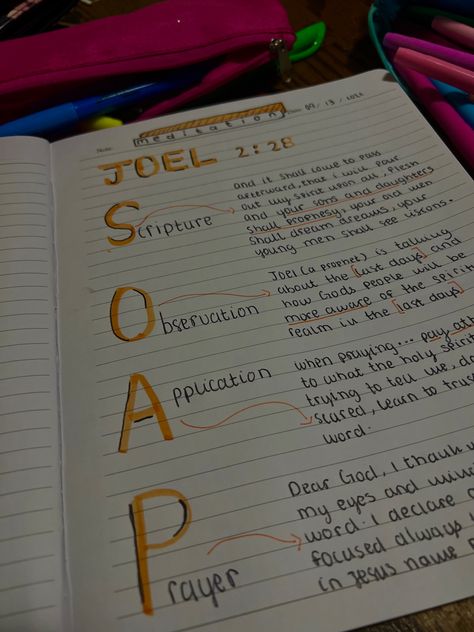 meditation
09/13/2021
JOEL 2:28
Scripture
and it shall come to pass
afterward, that i will pour
out my spirit upon all, flesh
and your sons and daughters
shall prophesy, your old men
shall dream dreams, your
young men shall see visions.
Observation
JOEL (a prophet) is talking
about the [last days] and
how Gods people will be
more aware of the spirit
realm in the [last days]
Application
when praying... pay
to what the holy
trying to tell us,
scared, learn to
word.
Prayer
Dear God, I thank
my eyes and
word. I declare
focused always
in Jesus name